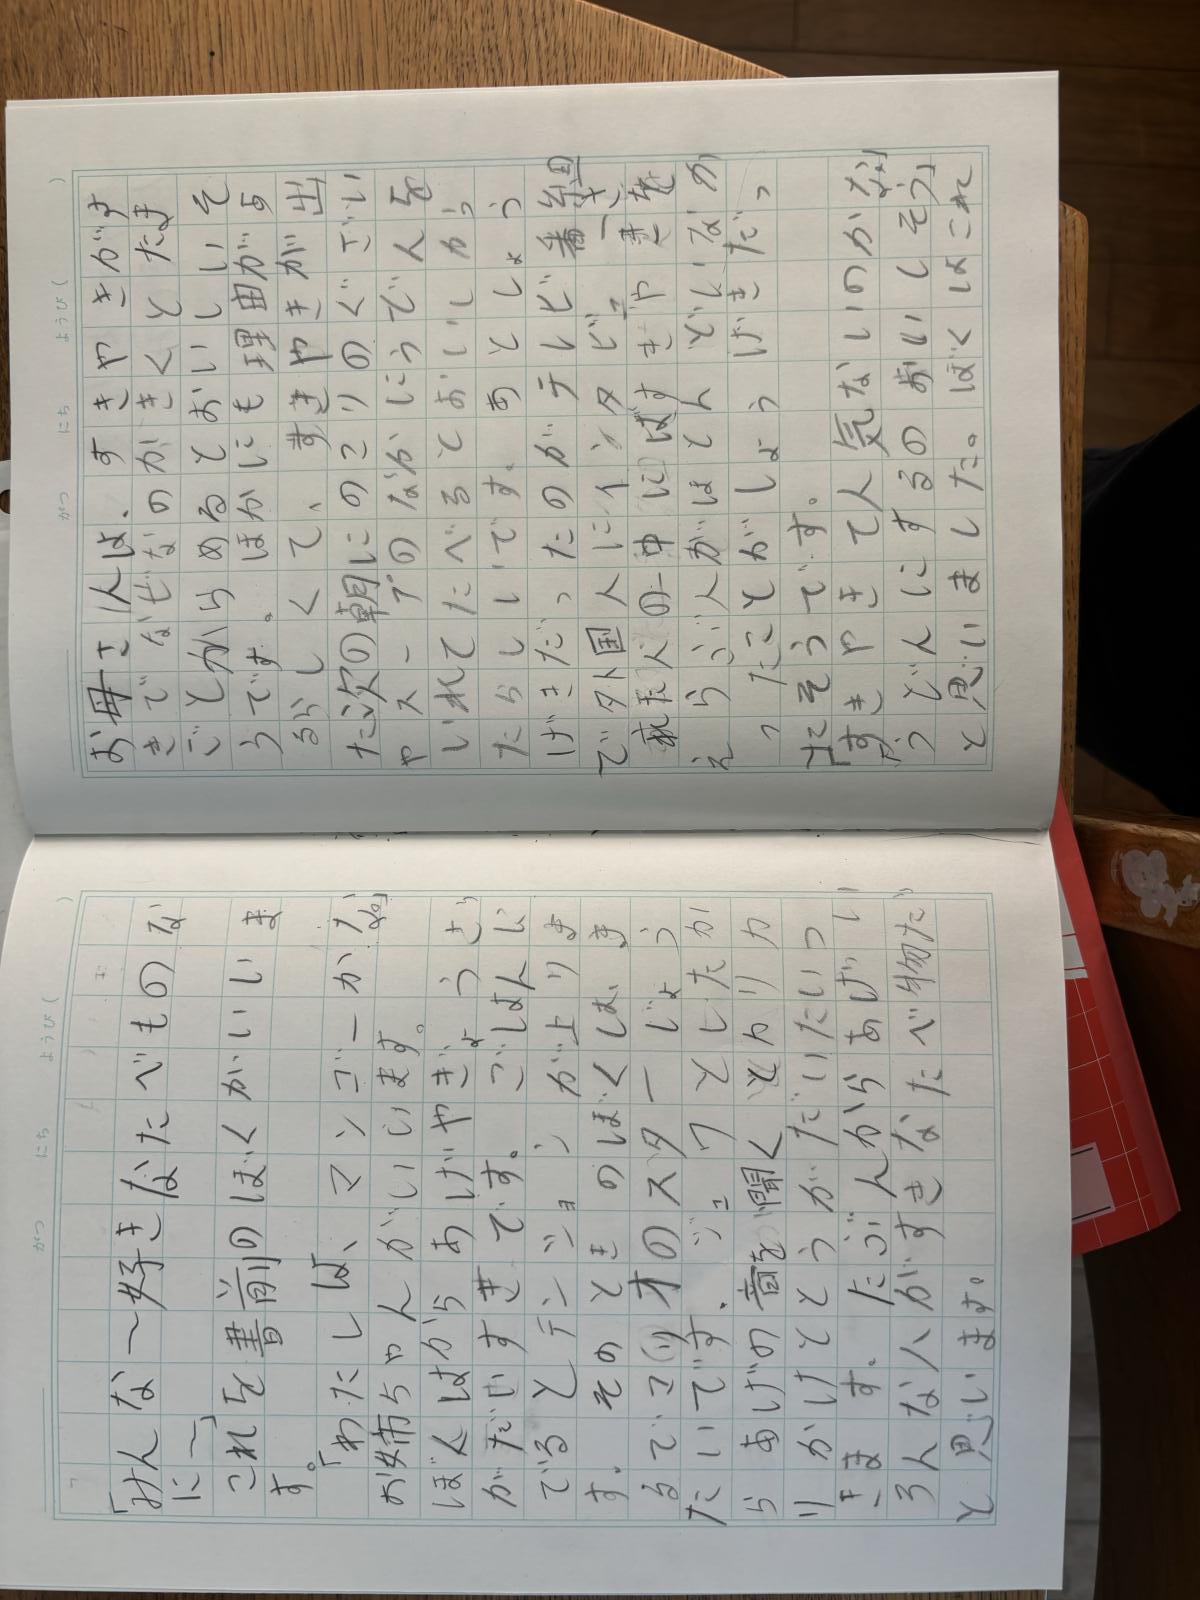 がつ にち ようび( )
「みんな〜好きなたべものな
に〜」
これを書前のぼくがいいま
す。
「わたしは、マンゴーかな。」
お姉ちゃんがいいます。
ぼくはからあげやぎょうざ
がだいすきです。ごはんに
でるとテンションが上りま
す。そのときのぼくは、ま
るでマリオのスターじょう
たいです。ジュワとしたか
らあげの音を聞くとカリカ
リかけてとうがだいたいつ
きます。たぶんからあげは、い
ろんな人がすきなたべ物だ
と思います。
がつ にち ようび( )
お母さんは、すきやきがす
きでなぜなのかきくとたま
ごとからめるとおいしいそ
うです。ほかにも理由があ
るらしくて、すきやきが出
た次の朝にのこりのぐざい
やスープのなかにうどんを
いれてたべるとおいしか
たらしいです。あとしょう
げきだったのがテレビ番組
で外国人にインタビュー
した人の中にはすきやきを
えらぶ人がほとんどいなか
ったことがしょうげきだっ
たそうです。
「すきやきて人気ないのかな」
うどんにするのおいしそう」
と思いました。ぼくはこれ